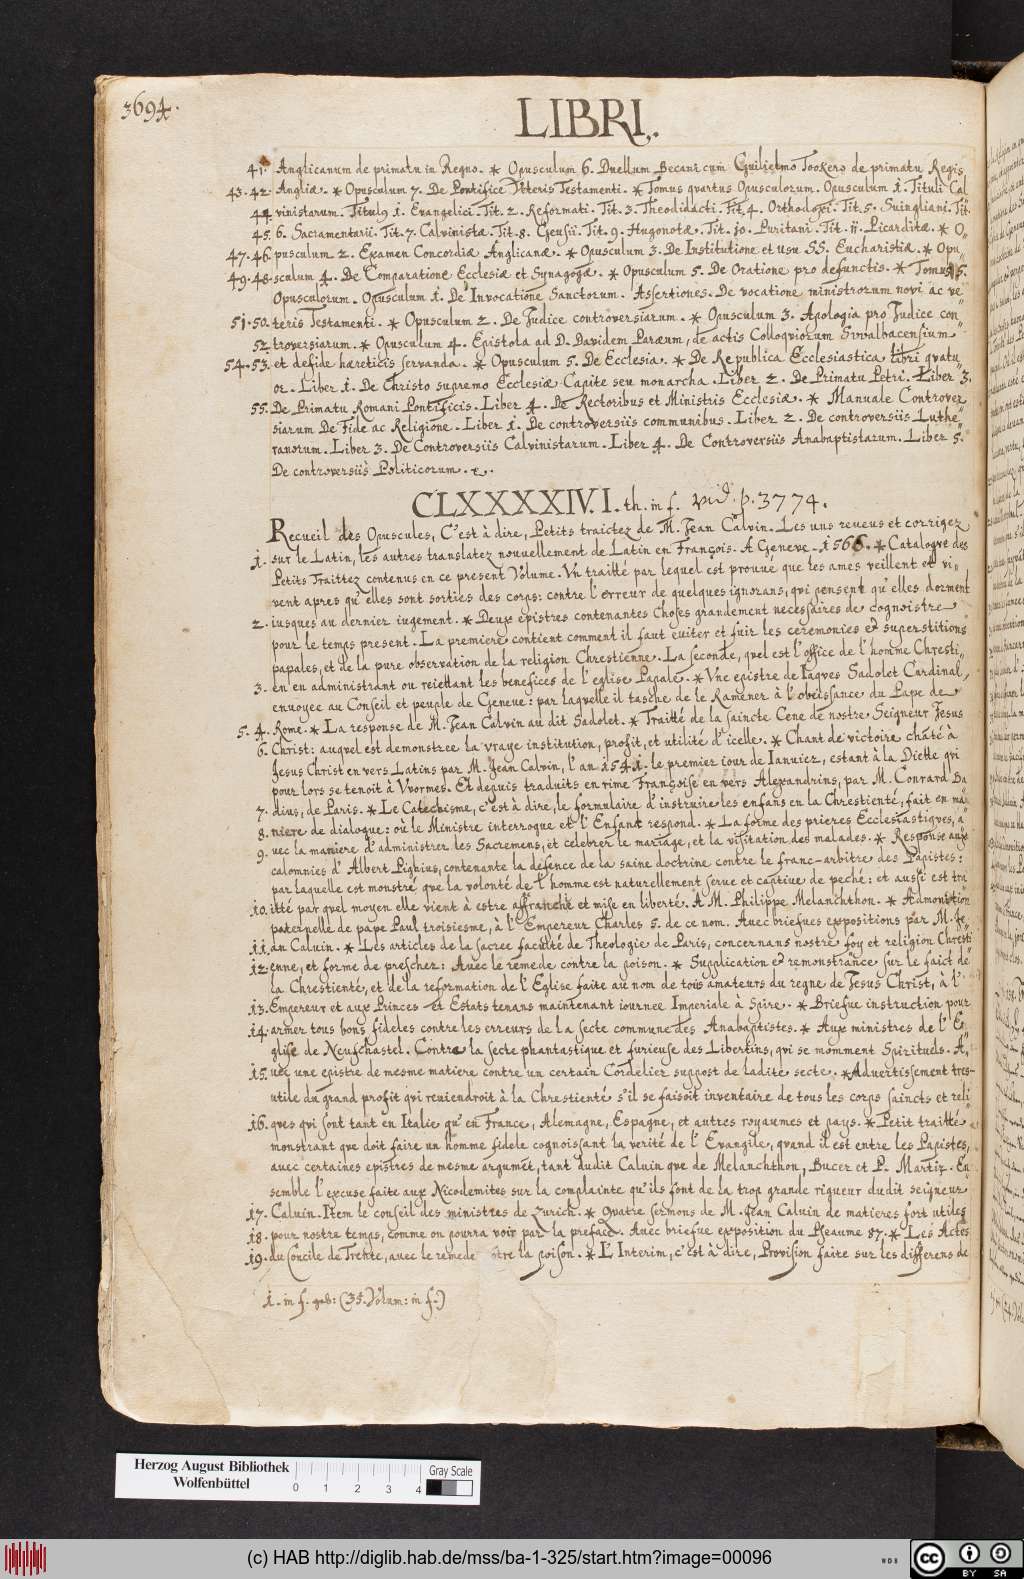 3694.
LIBRI.
41. Anglicanum de primatu in Regno. * Opusculum 6. Duellum Becani cum Guilielmo Tookero de primatu Regis
43. 42. Angliæ. * Opusculum 7. De Pontifice Veteris Testamenti. * Tomus quartus Opusculorum. Opusculum 1. Tituli Cal
44. vinistarum. Titulus 1. Evangelici. Tit. 2. Reformati. Tit. 3. Theodidacti. Tit. 4. Orthodoxi. Tit. 5. Suingliani. Tit.
45. 6. Sacramentarii. Tit. 7. Calvinistæ. Tit. 8. Geusii. Tit. 9. Hugonotæ. Tit. 10. Puritani. Tit. 11. Picarditæ. * O"
47. 46. pusculum 2. Examen Concordiæ Anglicanæ. * Opusculum 3. De Institutione et usu SS. Eucharistiæ * Opu"
49. 48. sculum 4. De Comparatione Ecclesiæ et Synagogæ. * Opusculum 5. De Oratione pro defunctis. * Tomus 5.
Opusculorum. Opusculum 1. De Invocatione Sanctorum. Assertiones. De vocatione ministrorum novi ac ve"
51. 50. teris Testamenti. * Opusculum 2. De Judice controversiarum. * Opusculum 3. Apologia pro Judice con"
52. troversiarum. * Opusculum 4. Epistola ad D. Davidem Paræum, de actis Colloquiorum Swalbacensium
54. 53. et de fide hæreticis servanda. * Opusculum 5. De Ecclesia. * De Republica Ecclesiastica libri quatu"
or. Liber 1. De Christo supremo Ecclesiæ Capite seu monarcha. Liber 2. De Primatu Petri. Liber 3.
55. De Primatu Romani Pontificis. Liber 4. De Rectoribus et Ministris Ecclesiæ. * Manuale Controver"
siarum De Fide ac Religione. Liber 1. De controversiis communibus. Liber 2. De controversiis Luthe"
ranorum. Liber 3. De Controversiis Calvinistarum. Liber 4. De Controversiis Anabaptistarum. Liber 5.
De controversiis Politicorum.
CLXXXXIV. I. th. in f. vid. p. 3774.
Recueil des Opuscules, C'est à dire, Petits traictez de M. Jean Calvin. Les uns reveus et corrigez
1. sur le Latin, les autres translatez nouvellement de Latin en François. A Geneve. 1566. * Catalogue des
Petits Traittez contenus en ce present Volume. Vn traitté par lequel est prouvé que les ames veillent et vi"
vent apres qu'elles sont sorties des corps: contre l'erreur de quelques ignorans, qui pensent qu'elles dorment
2. iusques au dernier iugement. * Deux epistres contenantes choses grandement necessaires de cognoistre
pour le temps present. La premiere contient comment il faut euiter et fuir les ceremonies et superstitions
papales, et de la pure observation de la religion Chrestienne. La seconde, quel est l'office de l'homme Chresti"
en en administrant ou reiettant les benefices de l'eglise Papale. * Vne epistre de Iaques Sadolet Cardinal,
3. envoyee au Conseil et peuple de Geneue: par laquelle il tasche de le Ramener à l'obeissance du Pape de
5. 4. Rome. * La response de M. Jean Calvin au dit Sadolet. * Traitté de la saincte Cene de nostre Seigneur Jesus
6. Christ: auquel est demonstree la vraye institution, profit, et utilité d'icelle. * Chant de victoire chãté à
Jesus Christ en vers Latins par M. Jean Calvin, l'an 1541. le premier iour de Ianvier, estant à la Diette qui
pour lors se tenoit à Wormes. Et depuis traduits en rime Françoise en vers Alexandrins, par M. Conrard Ba
7. dius, de Paris. * Le Catechisme, c'est à dire, le formulaire d'instruire les enfans en la Chrestienté, fait en ma
8. niere de dialogue: où le Ministre interrogue et l'Enfant respond. * La forme des prieres Ecclesiastiques, a
9. uec la maniere d'administrer les Sacremens, et celebrer le mariage, et la visitation des malades. * Response aux
calomnies d'Albert Pighius, contenante la defence de la saine doctrine contre le franc-arbitre des Papistes:
par laquelle est monstré que la volonté de l'homme est naturellement serue et captiue de peché: et aussi est tra
10. itté par quel moyen elle vient à estre affranchie et mise en liberté. A M. Philippe Melanchthon. * Admonition
paternelle de pape Paul troisiesme, à l'Empereur Charles 5. de ce nom. Avec briefues expositions par M. Je
11. an Calvin. * Les articles de la sacree faculté de Theologie de Paris, concernans nostre foy et religion Chresti
12. enne, et forme de prescher: Avec le remede contre la poison. * Supplication et remonstrance sur le faict de
la Chrestienté, et de la reformation de l'Eglise faite au nom de tous amateurs du regne de Jesus Christ, à l'
13. Empereur et aux Princes et Estats tenans maintenant iournee Imperiale à Spire. * Briefue instruction pour
14. armer tous bons fideles contre les erreurs de la secte commune des Anabaptistes. * Aux ministres de l'E"
glise de Neufchastel. Contre la secte phantastique et furieuse des Libertins, qui se nomment Spirituels. A"
15. uec une epistre de mesme matiere contre un certain Cordelier suppost de ladite secte. * Advertissement tres-
utile du grand profit qui reuiendroit à la Chrestienté s'il se faisoit inventaire de tous les corps saincts et reli"
16. ques qui sont tant en Italie qu'en France, Alemagne, Espagne, et autres royaumes et pays. * Petit traitté
monstrant que doit faire un homme fidele cognoissant la verité de l'Evangile, quand il est entre les Papistes,
auec certaines epistres de mesme argumẽt, tant dudit Calvin que de Melanchthon, Bucer et P. Martir. En
semble l'excuse faite aux Nicodemites sur la complainte qu'ils font de la trop grande rigueur dudit seigneur
17. Calvin. Item le conseil des ministres de Zurich. * Quatre sermons de M. Jean Calvin de matieres fort utiles
18. pour nostre temps, comme on pourra voir par la preface. Avec briefue exposition du Pseaume 87. * Les Actes
19. du Concile de Trente, avec le remede ontre la poison. * L'Interim, c'est à dire, Provision faite sur les differens de
1. in f. geb: (35. Volum: in f.)
Herzog August Bibliothek
Wolfenbüttel
0 1 2 3 4
Gray Scale
(c) HAB http://diglib.hab.de/mss/ba-1-325/start.htm?image=00096
WDB
cc BY SA